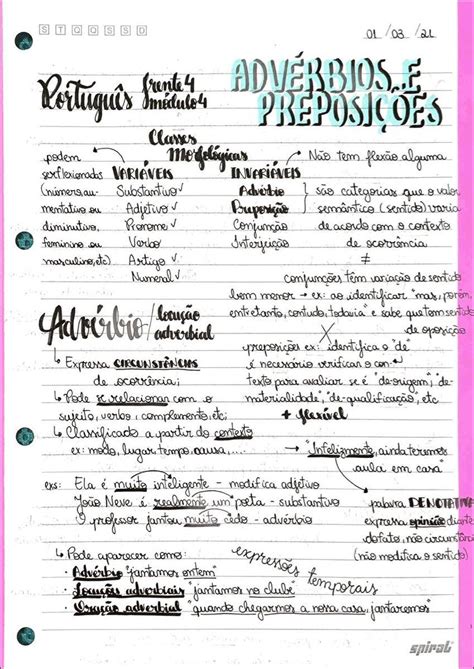 S T Q Q S S D
01 / 03 / 21
Português frente 4
módulo 4
ADVÉRBIOS E
PREPOSIÇÕES
Classes
Morfológicas
podem
ser flexionados
(número, au-
mentativo ou
diminutivo,
feminino ou
masculino, etc)
VARIÁVEIS
Substantivo ✓
Adjetivo ✓
Pronome ✓
Verbo
Artigo ✓
Numeral ✓
INVARIÁVEIS
Advérbio
Preposição
Conjunção
Interjeição
Não tem flexão alguma
são categorias que o valor
semântico (sentido) varia
de acordo com o contexto
de ocorrência
≠
conjunções têm variação de sentido
bem menor → ex: ao identificar "mas, porém,
entretanto, contudo, todavia" e sabe que tem sentido
de oposição
X
preposições ex: identifica o "de"
é necessário verificar o con-
texto para avaliar se é "de-origem", "de-
materialidade", "de-qualificação", etc
+ flexível
Advérbio / locução
adverbial
↳ Expressa CIRCUNSTÂNCIAS
de ocorrência;
↳ Pode se relacionar com o
sujeito, verbo, complemento, etc;
↳ Classificado a partir do contexto
ex: modo, lugar, tempo, causa, ....
→ "Infelizmente, ainda teremos
aula em casa"
exs: Ela é muito inteligente - modifica adjetivo
João Neve é realmente um poeta - substantivo
O professor jantou muito cedo - advérbio
palavra DENOTATIVA
expressa opinião diante
do fato, não circunstância
(não modifica o sentido)
↳ Pode aparecer como:
• Advérbio "jantamos ontem"
• Locuções adverbiais "jantamos no clube"
• Oração adverbial "quando chegarmos a nossa casa, jantaremos"
expressões temporais
spiral